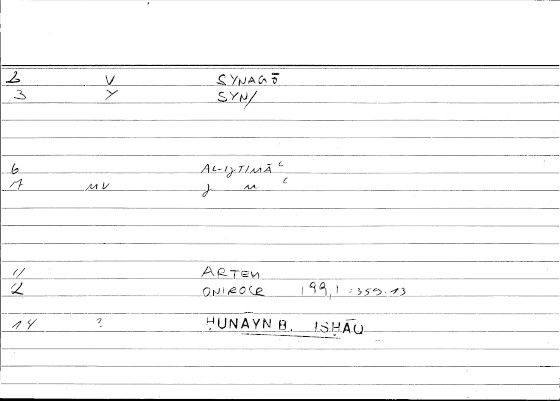 2 V SYNAGŌ
3 Y SYN/
6 AL-IJTIMĀʿ
7 MV J M ʿ
11 ARTEM
2 ONIROCR 199,1 : 359.13
14 ? ḤUNAYN B. ISḤĀQ